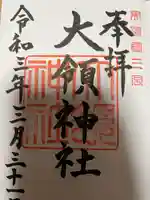 奉拝
大領神社
令和三年三月三十一日